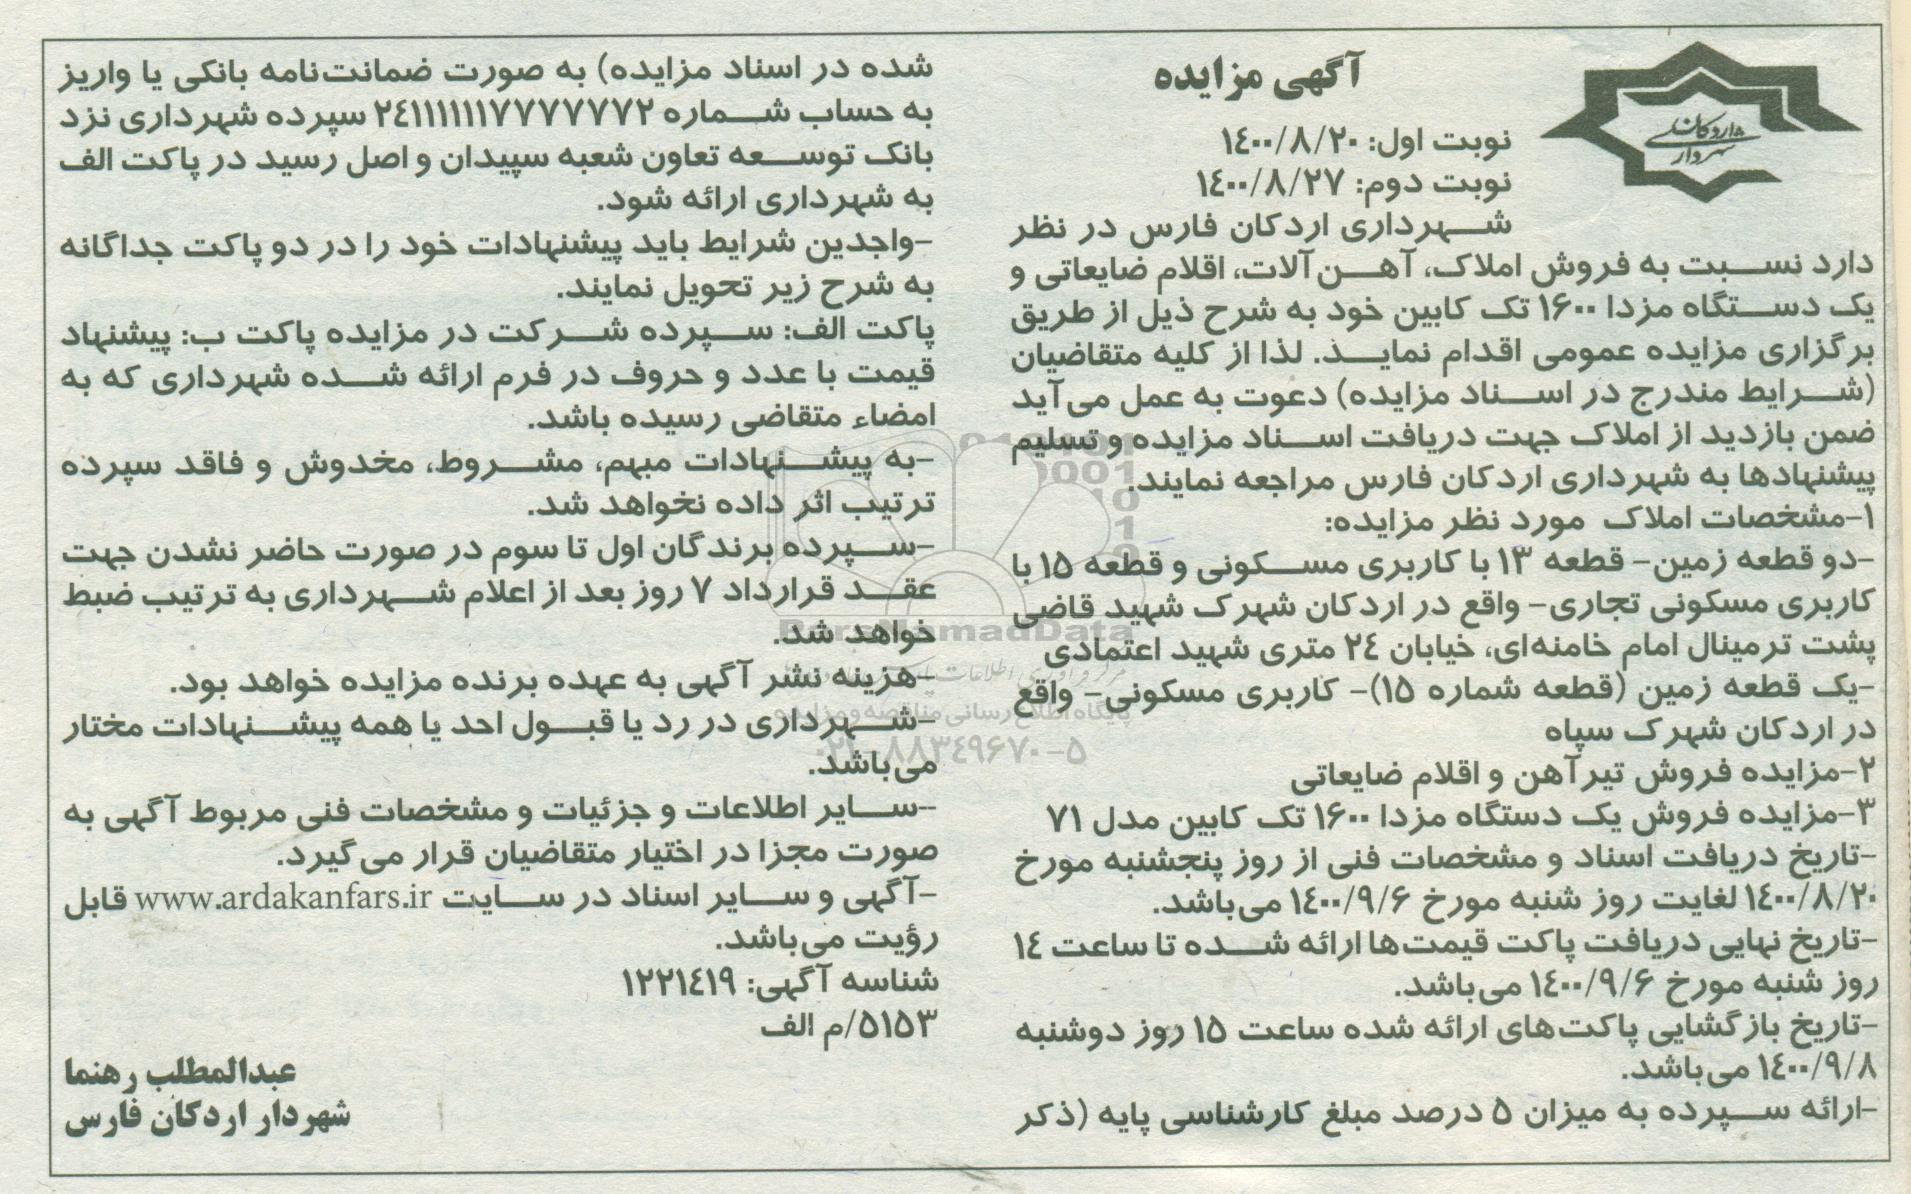 آگهی مزایده
شهرداری اردکان
نوبت اول: ۱٤۰۰/۸/۲۰
نوبت دوم: ۱٤۰۰/۸/۲۷
شهرداری اردکان فارس در نظر
دارد نسبت به فروش املاک، آهن‌آلات، اقلام ضایعاتی و
یک دستگاه مزدا ۱۶۰۰ تک کابین خود به شرح ذیل از طریق
برگزاری مزایده عمومی اقدام نماید. لذا از کلیه متقاضیان
(شرایط مندرج در اسناد مزایده) دعوت به عمل می‌آید
ضمن بازدید از املاک جهت دریافت اسناد مزایده و تسلیم
پیشنهادها به شهرداری اردکان فارس مراجعه نمایند.
۱-مشخصات املاک مورد نظر مزایده:
-دو قطعه زمین- قطعه ۱۳ با کاربری مسکونی و قطعه ۱۵ با
کاربری مسکونی تجاری- واقع در اردکان شهرک شهید قاضی
پشت ترمینال امام خامنه‌ای، خیابان ۲٤ متری شهید اعتمادی
-یک قطعه زمین (قطعه شماره ۱۵)- کاربری مسکونی- واقع
در اردکان شهرک سپاه
۲-مزایده فروش تیرآهن و اقلام ضایعاتی
۳-مزایده فروش یک دستگاه مزدا ۱۶۰۰ تک کابین مدل ۷۱
-تاریخ دریافت اسناد و مشخصات فنی از روز پنجشنبه مورخ
۱٤۰۰/۸/۲۰ لغایت روز شنبه مورخ ۱٤۰۰/۹/۶ می‌باشد.
-تاریخ نهایی دریافت پاکت قیمت‌ها ارائه شده تا ساعت ۱٤
روز شنبه مورخ ۱٤۰۰/۹/۶ می‌باشد.
-تاریخ بازگشایی پاکت‌های ارائه شده ساعت ۱۵ روز دوشنبه
۱٤۰۰/۹/۸ می‌باشد.
-ارائه سپرده به میزان ۵ درصد مبلغ کارشناسی پایه (ذکر
شده در اسناد مزایده) به صورت ضمانت‌نامه بانکی یا واریز
به حساب شماره ۲٤۱۱۱۱۱۱۱۷۷۷۷۷۷۲ سپرده شهرداری نزد
بانک توسعه تعاون شعبه سپیدان و اصل رسید در پاکت الف
به شهرداری ارائه شود.
-واجدین شرایط باید پیشنهادات خود را در دو پاکت جداگانه
به شرح زیر تحویل نمایند.
پاکت الف: سپرده شرکت در مزایده پاکت ب: پیشنهاد
قیمت با عدد و حروف در فرم ارائه شده شهرداری که به
امضاء متقاضی رسیده باشد.
-به پیشنهادات مبهم، مشروط، مخدوش و فاقد سپرده
ترتیب اثر داده نخواهد شد.
-سپرده برندگان اول تا سوم در صورت حاضر نشدن جهت
عقد قرارداد ۷ روز بعد از اعلام شهرداری به ترتیب ضبط
خواهد شد.
-هزینه نشر آگهی به عهده برنده مزایده خواهد بود.
-شهرداری در رد یا قبول احد یا همه پیشنهادات مختار
می‌باشد.
-سایر اطلاعات و جزئیات و مشخصات فنی مربوط آگهی به
صورت مجزا در اختیار متقاضیان قرار می‌گیرد.
-آگهی و سایر اسناد در سایت www.ardakanfars.ir قابل
رؤیت می‌باشد.
شناسه آگهی: ۱۲۲۱٤۱۹
۵۱۵۳/م الف
عبدالمطلب رهنما
شهردار اردکان فارس
ParsNamadData
پایگاه اطلاع رسانی مناقصه و مزایده
۰۲۱-۸۸۳٤۹۶۷۰-۵